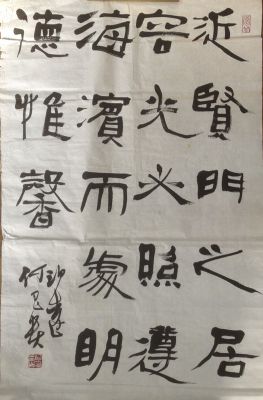 近賢門之居
容光必照遵
海濱而處明
德惟馨